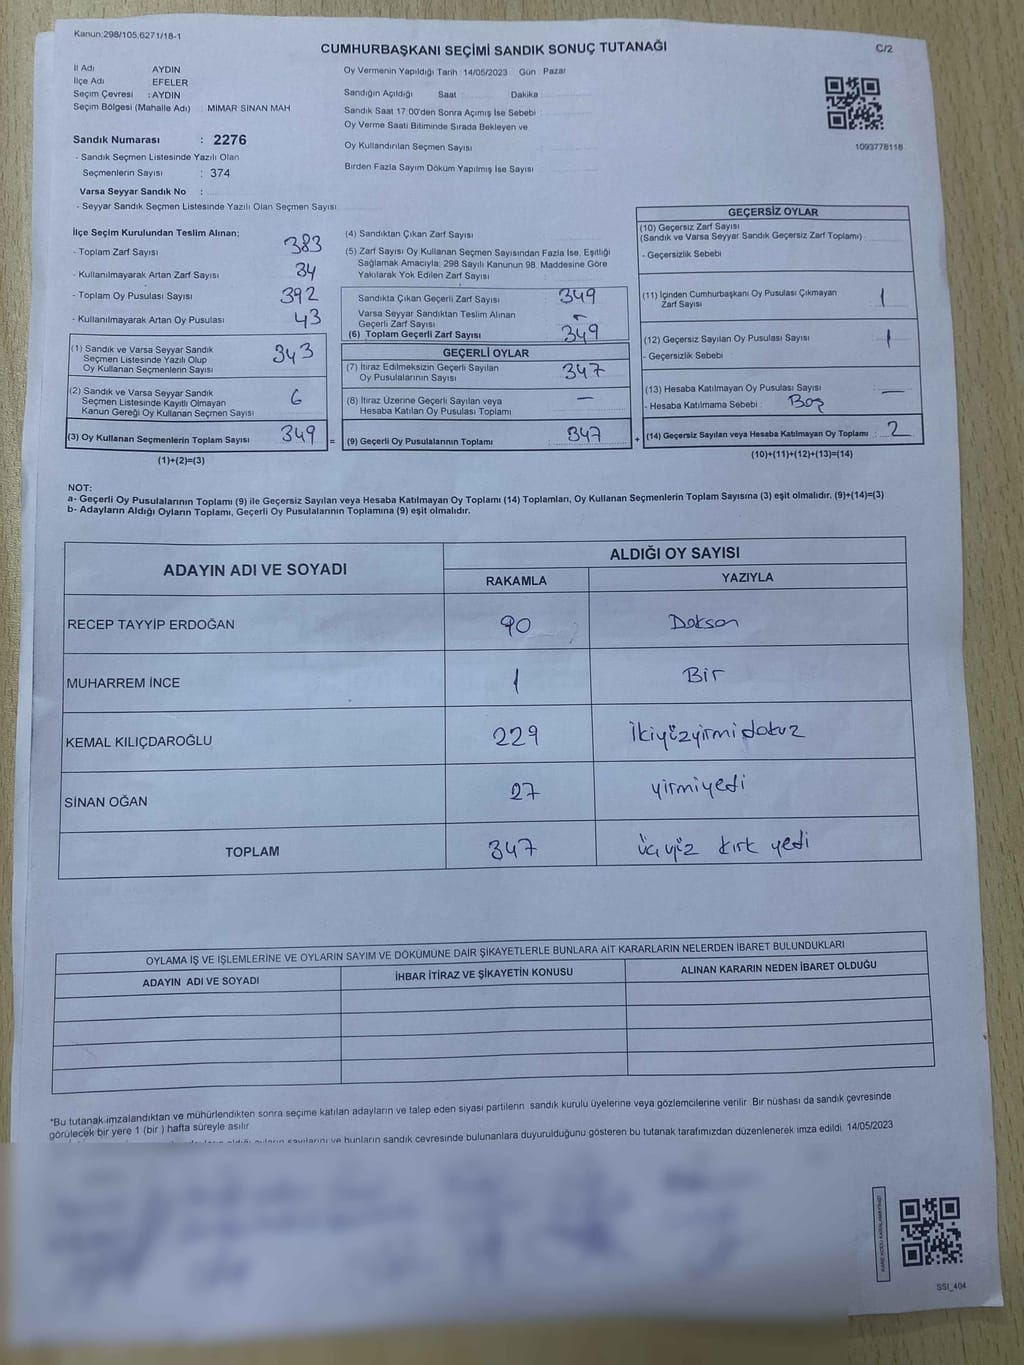 Kanun:298/105,6271/18-1
CUMHURBAŞKANI SEÇİMİ SANDIK SONUÇ TUTANAĞI
C/2
İl Adı AYDIN
İlçe Adı EFELER
Seçim Çevresi : AYDIN
Seçim Bölgesi (Mahalle Adı) MİMAR SİNAN MAH
Sandık Numarası : 2276
- Sandık Seçmen Listesinde Yazılı Olan
Seçmenlerin Sayısı : 374
Varsa Seyyar Sandık No :
- Seyyar Sandık Seçmen Listesinde Yazılı Olan Seçmen Sayısı
Oy Vermenin Yapıldığı Tarih : 14/05/2023 Gün : Pazar
Sandığın Açıldığı Saat : Dakika :
Sandık Saat 17:00'den Sonra Açımış İse Sebebi :
Oy Verme Saati Bitiminde Sırada Bekleyen ve
Oy Kullandırılan Seçmen Sayısı
Birden Fazla Sayım Döküm Yapılmış İse Sayısı
1093778118
İlçe Seçim Kurulundan Teslim Alınan;
- Toplam Zarf Sayısı 383
- Kullanılmayarak Artan Zarf Sayısı 34
- Toplam Oy Pusulası Sayısı 392
- Kullanılmayarak Artan Oy Pusulası 43
(1) Sandık ve Varsa Seyyar Sandık
Seçmen Listesinde Yazılı Olup
Oy Kullanan Seçmenlerin Sayısı 343
(2) Sandık ve Varsa Seyyar Sandık
Seçmen Listesinde Kayıtlı Olmayan
Kanun Gereği Oy Kullanan Seçmen Sayısı 6
(3) Oy Kullanan Seçmenlerin Toplam Sayısı 349 =
(1)+(2)=(3)
(4) Sandıktan Çıkan Zarf Sayısı
(5) Zarf Sayısı Oy Kullanan Seçmen Sayısından Fazla İse, Eşitliği
Sağlamak Amacıyla, 298 Sayılı Kanunun 98. Maddesine Göre
Yakılarak Yok Edilen Zarf Sayısı :
Sandıkta Çıkan Geçerli Zarf Sayısı 349
Varsa Seyyar Sandıktan Teslim Alınan
Geçerli Zarf Sayısı -
(6) Toplam Geçerli Zarf Sayısı 349
GEÇERLİ OYLAR
(7) İtiraz Edilmeksizin Geçerli Sayılan
Oy Pusulalarının Sayısı 347
(8) İtiraz Üzerine Geçerli Sayılan veya
Hesaba Katılan Oy Pusulası Toplamı -
(9) Geçerli Oy Pusulalarının Toplamı : 347 +
GEÇERSİZ OYLAR
(10) Geçersiz Zarf Sayısı
(Sandık ve Varsa Seyyar Sandık Geçersiz Zarf Toplamı) :
- Geçersizlik Sebebi
(11) İçinden Cumhurbaşkanı Oy Pusulası Çıkmayan
Zarf Sayısı 1
(12) Geçersiz Sayılan Oy Pusulası Sayısı 1
- Geçersizlik Sebebi
(13) Hesaba Katılmayan Oy Pusulası Sayısı : —
- Hesaba Katılmama Sebebi : Boş
(14) Geçersiz Sayılan veya Hesaba Katılmayan Oy Toplamı : 2
(10)+(11)+(12)+(13)=(14)
NOT:
a- Geçerli Oy Pusulalarının Toplamı (9) ile Geçersiz Sayılan veya Hesaba Katılmayan Oy Toplamı (14) Toplamları, Oy Kullanan Seçmenlerin Toplam Sayısına (3) eşit olmalıdır. (9)+(14)=(3)
b- Adayların Aldığı Oyların Toplamı, Geçerli Oy Pusulalarının Toplamına (9) eşit olmalıdır.
ADAYIN ADI VE SOYADI
ALDIĞI OY SAYISI
RAKAMLA YAZIYLA
RECEP TAYYİP ERDOĞAN 90 Doksan
MUHARREM İNCE 1 Bir
KEMAL KILIÇDAROĞLU 229 İkiyüzyirmidokuz
SİNAN OĞAN 27 yirmiyedi
TOPLAM 347 üçyüz kırk yedi
OYLAMA İŞ VE İŞLEMLERİNE VE OYLARIN SAYIM VE DÖKÜMÜNE DAİR ŞİKAYETLERLE BUNLARA AİT KARARLARIN NELERDEN İBARET BULUNDUKLARI
ADAYIN ADI VE SOYADI İHBAR İTİRAZ VE ŞİKAYETİN KONUSU ALINAN KARARIN NEDEN İBARET OLDUĞU
*Bu tutanak imzalandıktan ve mühürlendikten sonra seçime katılan adayların ve talep eden siyasi partilerin sandık kurulu üyelerine veya gözlemcilerine verilir. Bir nüshası da sandık çevresinde
görülecek bir yere 1 (bir ) hafta süreyle asılır.
oyların sayılarını ve bunların sandık çevresinde bulunanlara duyurulduğunu gösteren bu tutanak tarafımızdan düzenlenerek imza edildi. 14/05/2023
KARE KODU KARALAMAYINIZ!
SSI_404